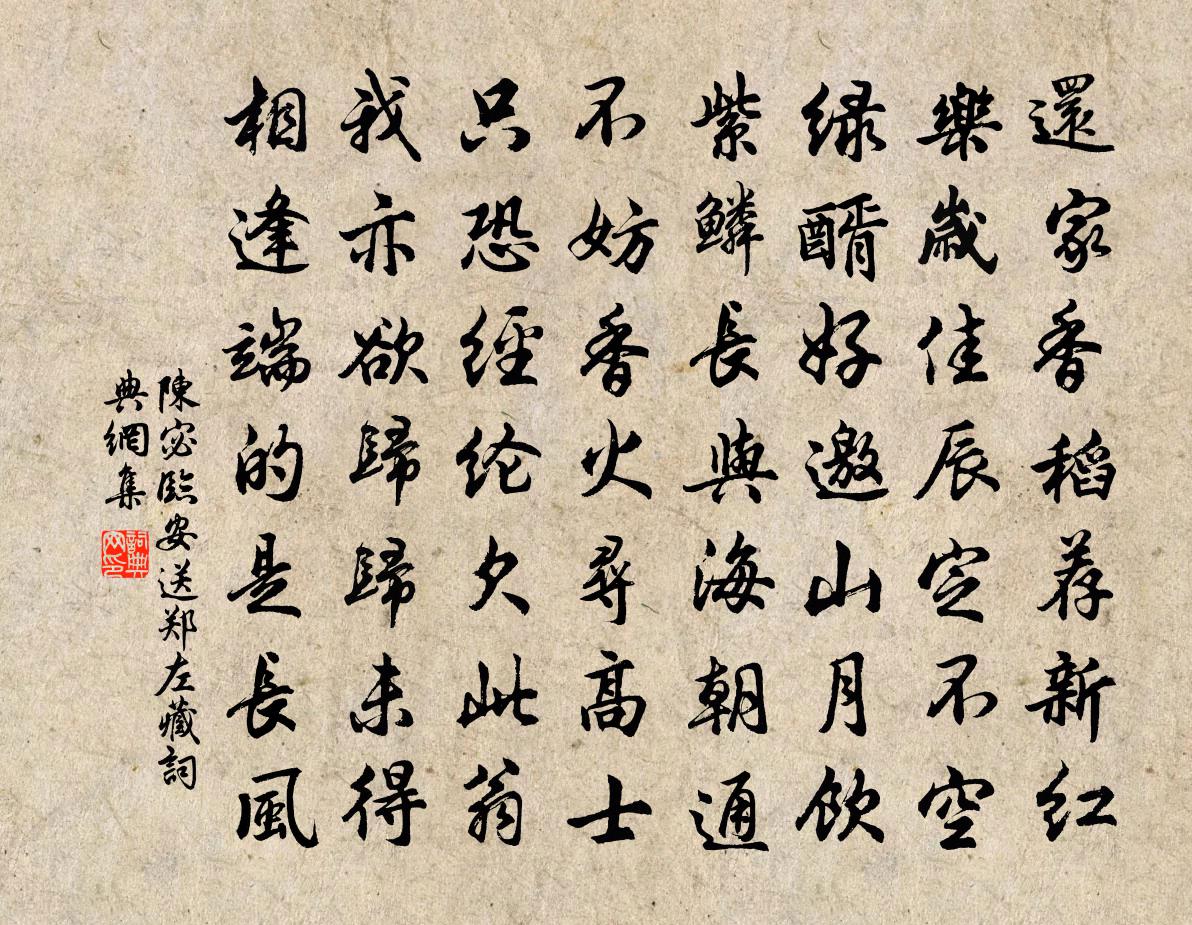 還家香稻荐新红
樂歲佳辰定不空
緑醑好邀山月飲
紫鱗長與海朝通
不妨香火尋高士
只恐經纶欠此翁
我亦欲歸歸未得
相逢端的是長風
陳宓臨安送郑左藏詞
典網集
詞典網印